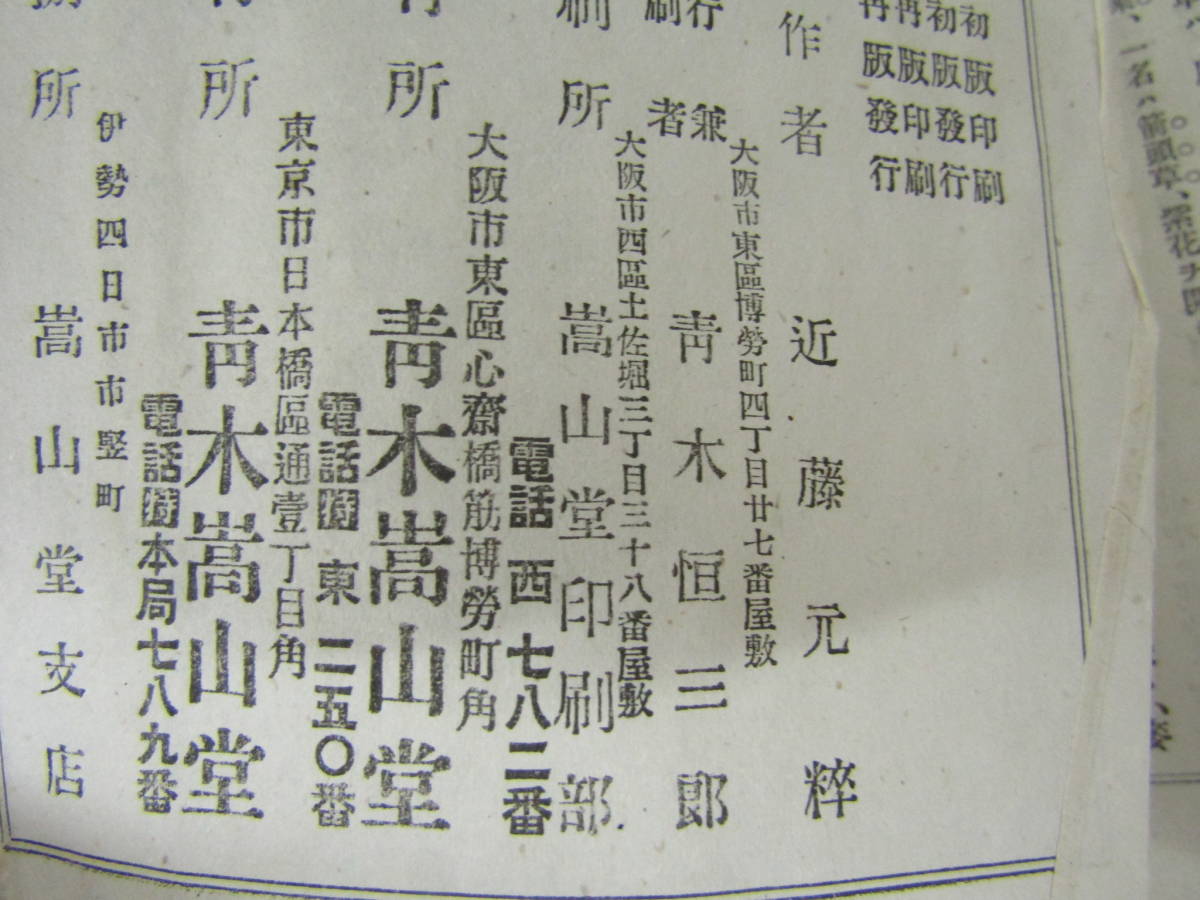 初版印刷
初版發行
再版印刷
再版發行
作者
近藤元粹
大阪市東區博勞町四丁目廿七番屋敷
行兼
刷者
青木恒三郎
大阪市西區土佐堀三丁目三十八番屋敷
刷所
嵩山堂印刷部
電話西七八二番
大阪市東區心齋橋筋博勞町角
行所
青木嵩山堂
電話東二五〇番
東京市日本橋區通壹丁目角
行所
青木嵩山堂
電話本局七八九番
伊勢四日市市竪町
所
嵩山堂支店
一名ハ箭頭草、